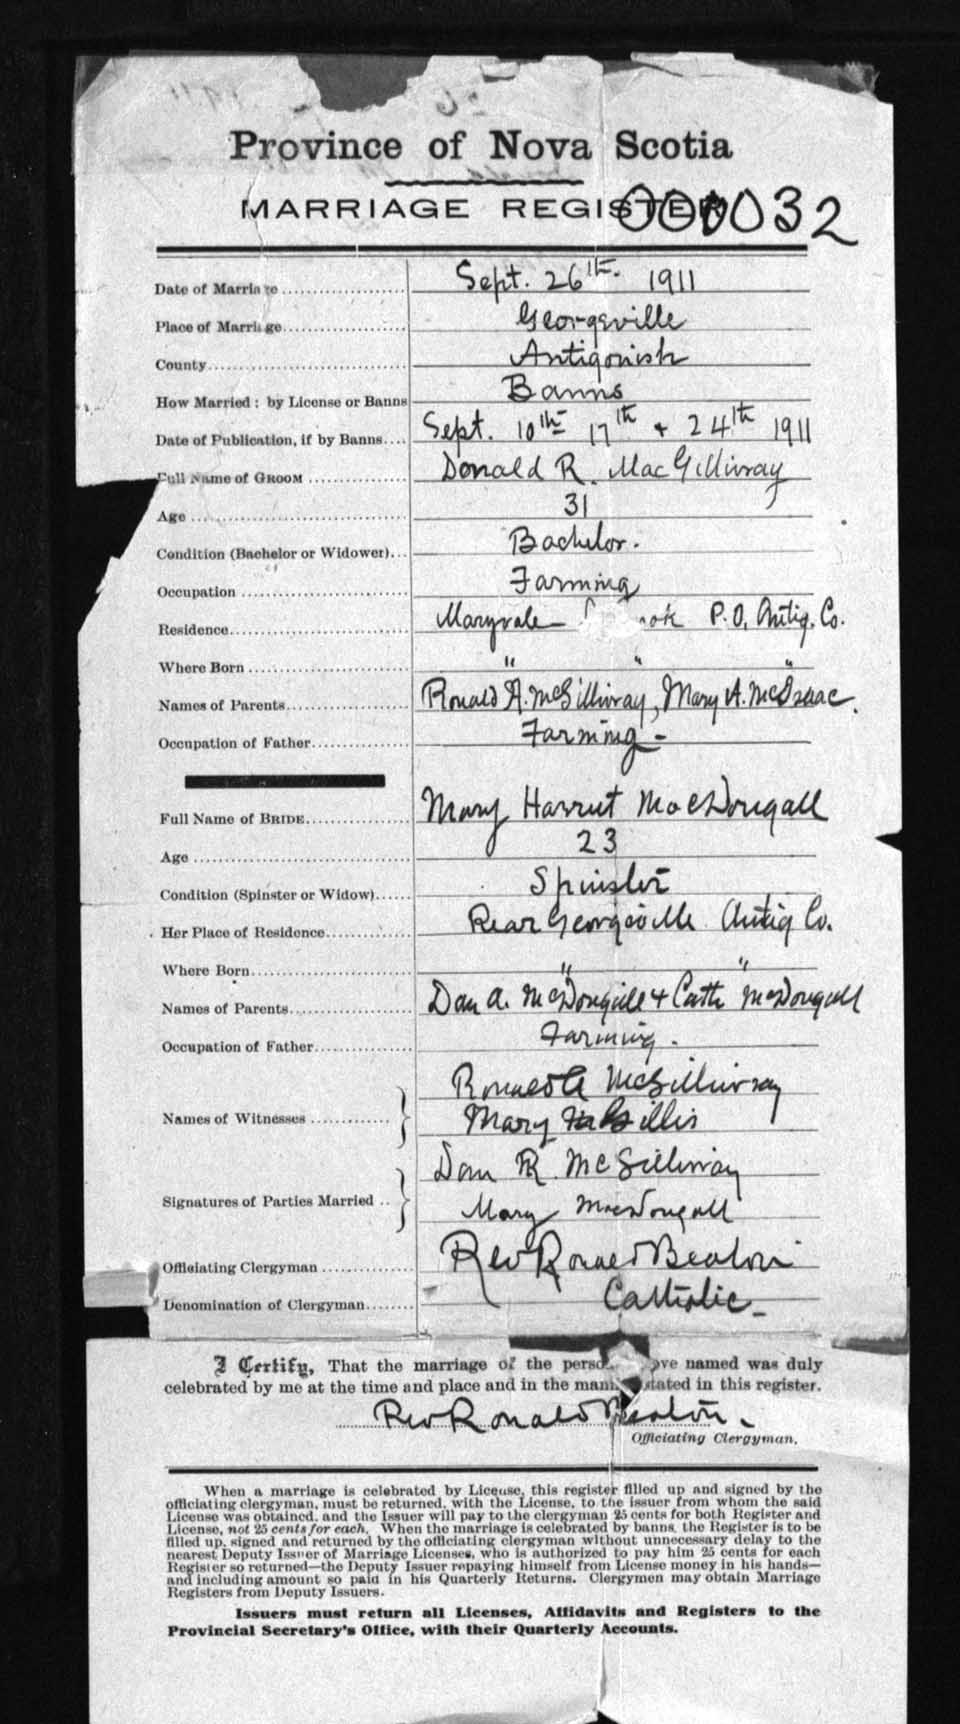 Province of Nova Scotia
MARRIAGE REGISTER 000032
Date of Marriage Sept. 26th. 1911
Place of Marriage Georgeville
County Antigonish
How Married: by License or Banns Banns
Date of Publication, if by Banns Sept. 10th 17th + 24th 1911
Full Name of GROOM Donald R. MacGillivray
Age 31
Condition (Bachelor or Widower) Bachelor.
Occupation Farming
Residence Maryvale P.O, Antig. Co.
Where Born " " "
Names of Parents Ronald A. McGillivray, Mary A. McIsaac.
Occupation of Father Farming -
Full Name of BRIDE Mary Harriet MacDougall
Age 23
Condition (Spinster or Widow) Spinster
Her Place of Residence Rear Georgeville Antig Co.
Where Born " "
Names of Parents Dan A. McDougall + Cath McDougall
Occupation of Father Farming.
Names of Witnesses Ronald A McGillivray
Mary Gillis
Signatures of Parties Married Dan R. McGillivray
Mary MacDougall
Officiating Clergyman Rev Ronald Beaton
Denomination of Clergyman Catholic -
I Certify, That the marriage of the above named was duly
celebrated by me at the time and place and in the stated in this register.
Rev Ronald Beaton.
Officiating Clergyman.
When a marriage is celebrated by License, this register filled up and signed by the
officiating clergyman, must be returned, with the License, to the issuer from whom the said
License was obtained, and the Issuer will pay to the clergyman 25 cents for both Register and
License, not 25 cents for each. When the marriage is celebrated by banns, the Register is to be
filled up, signed and returned by the officiating clergyman without unnecessary delay to the
nearest Deputy Issuer of Marriage Licenses, who is authorized to pay him 25 cents for each
Register so returned—the Deputy Issuer repaying himself from License money in his hands—
and including amount so paid in his Quarterly Returns. Clergymen may obtain Marriage
Registers from Deputy Issuers.
Issuers must return all Licenses, Affidavits and Registers to the
Provincial Secretary's Office, with their Quarterly Accounts.